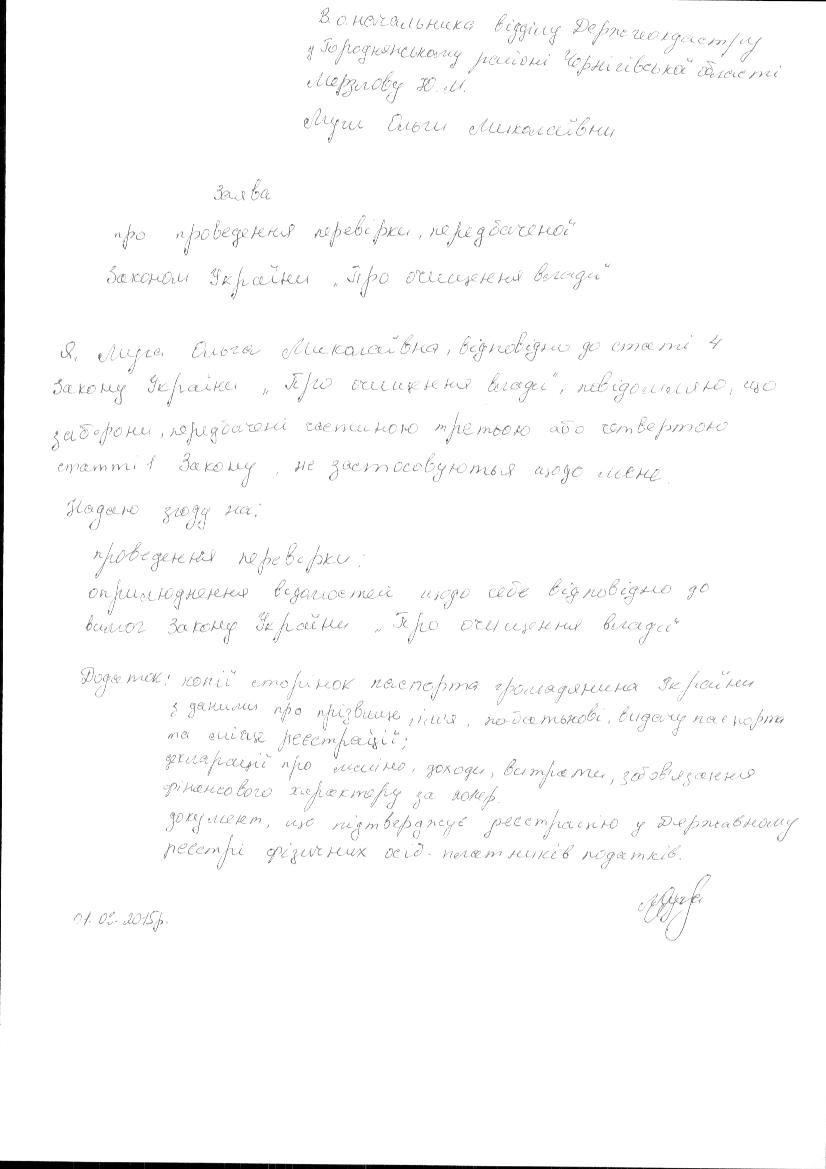 В.о. начальника відділу Держгеокадастру
у Городнянському районі Чернігівської області
Мерзлову Ю.М.
Ольги Миколаївни
Заява
про проведення перевірки, передбаченої
Законом України „Про очищення влади“
Я, Ольга Миколаївна, відповідно до статі 4
Закону України „Про очищення влади“, повідомляю, що
заборони, передбачені частиною третьою або четвертою
статті 1 Закону, не застосовуються щодо мене.
Надаю згоду на:
проведення перевірки;
оприлюднення відомостей щодо себе відповідно до
вимог Закону України „Про очищення влади“
Додаток: копії сторінок паспорта громадянина України
з даними про прізвище, ім'я, по батькові, видачу паспорта
та місце реєстрації;
декларації про майно, доходи, витрати, зобов'язання
фінансового характеру за 2014р.
документ, що підтверджує реєстрацію у Державному
реєстрі фізичних осіб-платників податків.
2015р.